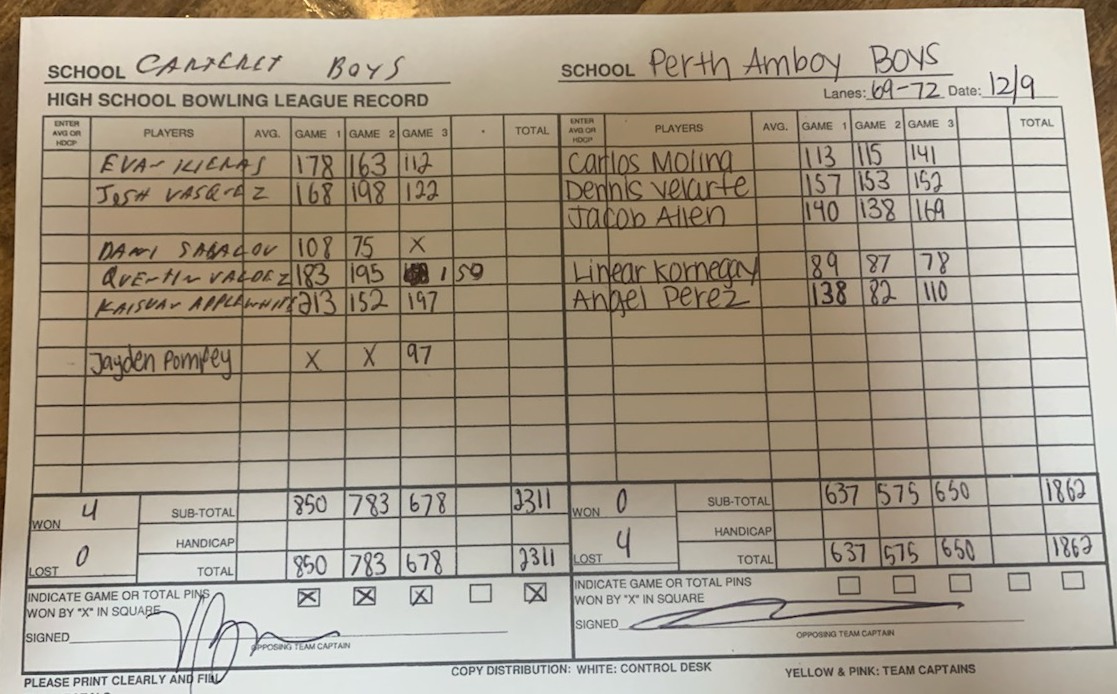 SCHOOL CARTERET BOYS SCHOOL Perth Amboy BOYS
HIGH SCHOOL BOWLING LEAGUE RECORD Lanes: 69-72 Date: 12/9
ENTER AVG OR HDCP PLAYERS AVG. GAME 1 GAME 2 GAME 3 TOTAL ENTER AVG OR HDCP PLAYERS AVG. GAME 1 GAME 2 GAME 3 TOTAL
EVAN 178 163 112 Carlos Molina 113 115 141
JOSH VASQUEZ 168 198 122 Dennis Velarte 157 153 152
Jacob Allen 140 138 169
DANI SABALOV 108 75 X
QUENTIN VALDEZ 183 195 150 Linear Kornegay 89 87 78
APPLEWHITE 213 152 197 Angel Perez 138 82 110
Jayden Pompey X X 97
WON 4 SUB-TOTAL 850 783 678 2311 WON 0 SUB-TOTAL 637 575 650 1862
HANDICAP HANDICAP
LOST 0 TOTAL 850 783 678 2311 LOST 4 TOTAL 637 575 650 1862
INDICATE GAME OR TOTAL PINS X X X X INDICATE GAME OR TOTAL PINS
WON BY "X" IN SQUARE WON BY "X" IN SQUARE
SIGNED SIGNED
OPPOSING TEAM CAPTAIN OPPOSING TEAM CAPTAIN
PLEASE PRINT CLEARLY AND FILL COPY DISTRIBUTION: WHITE: CONTROL DESK YELLOW & PINK: TEAM CAPTAINS